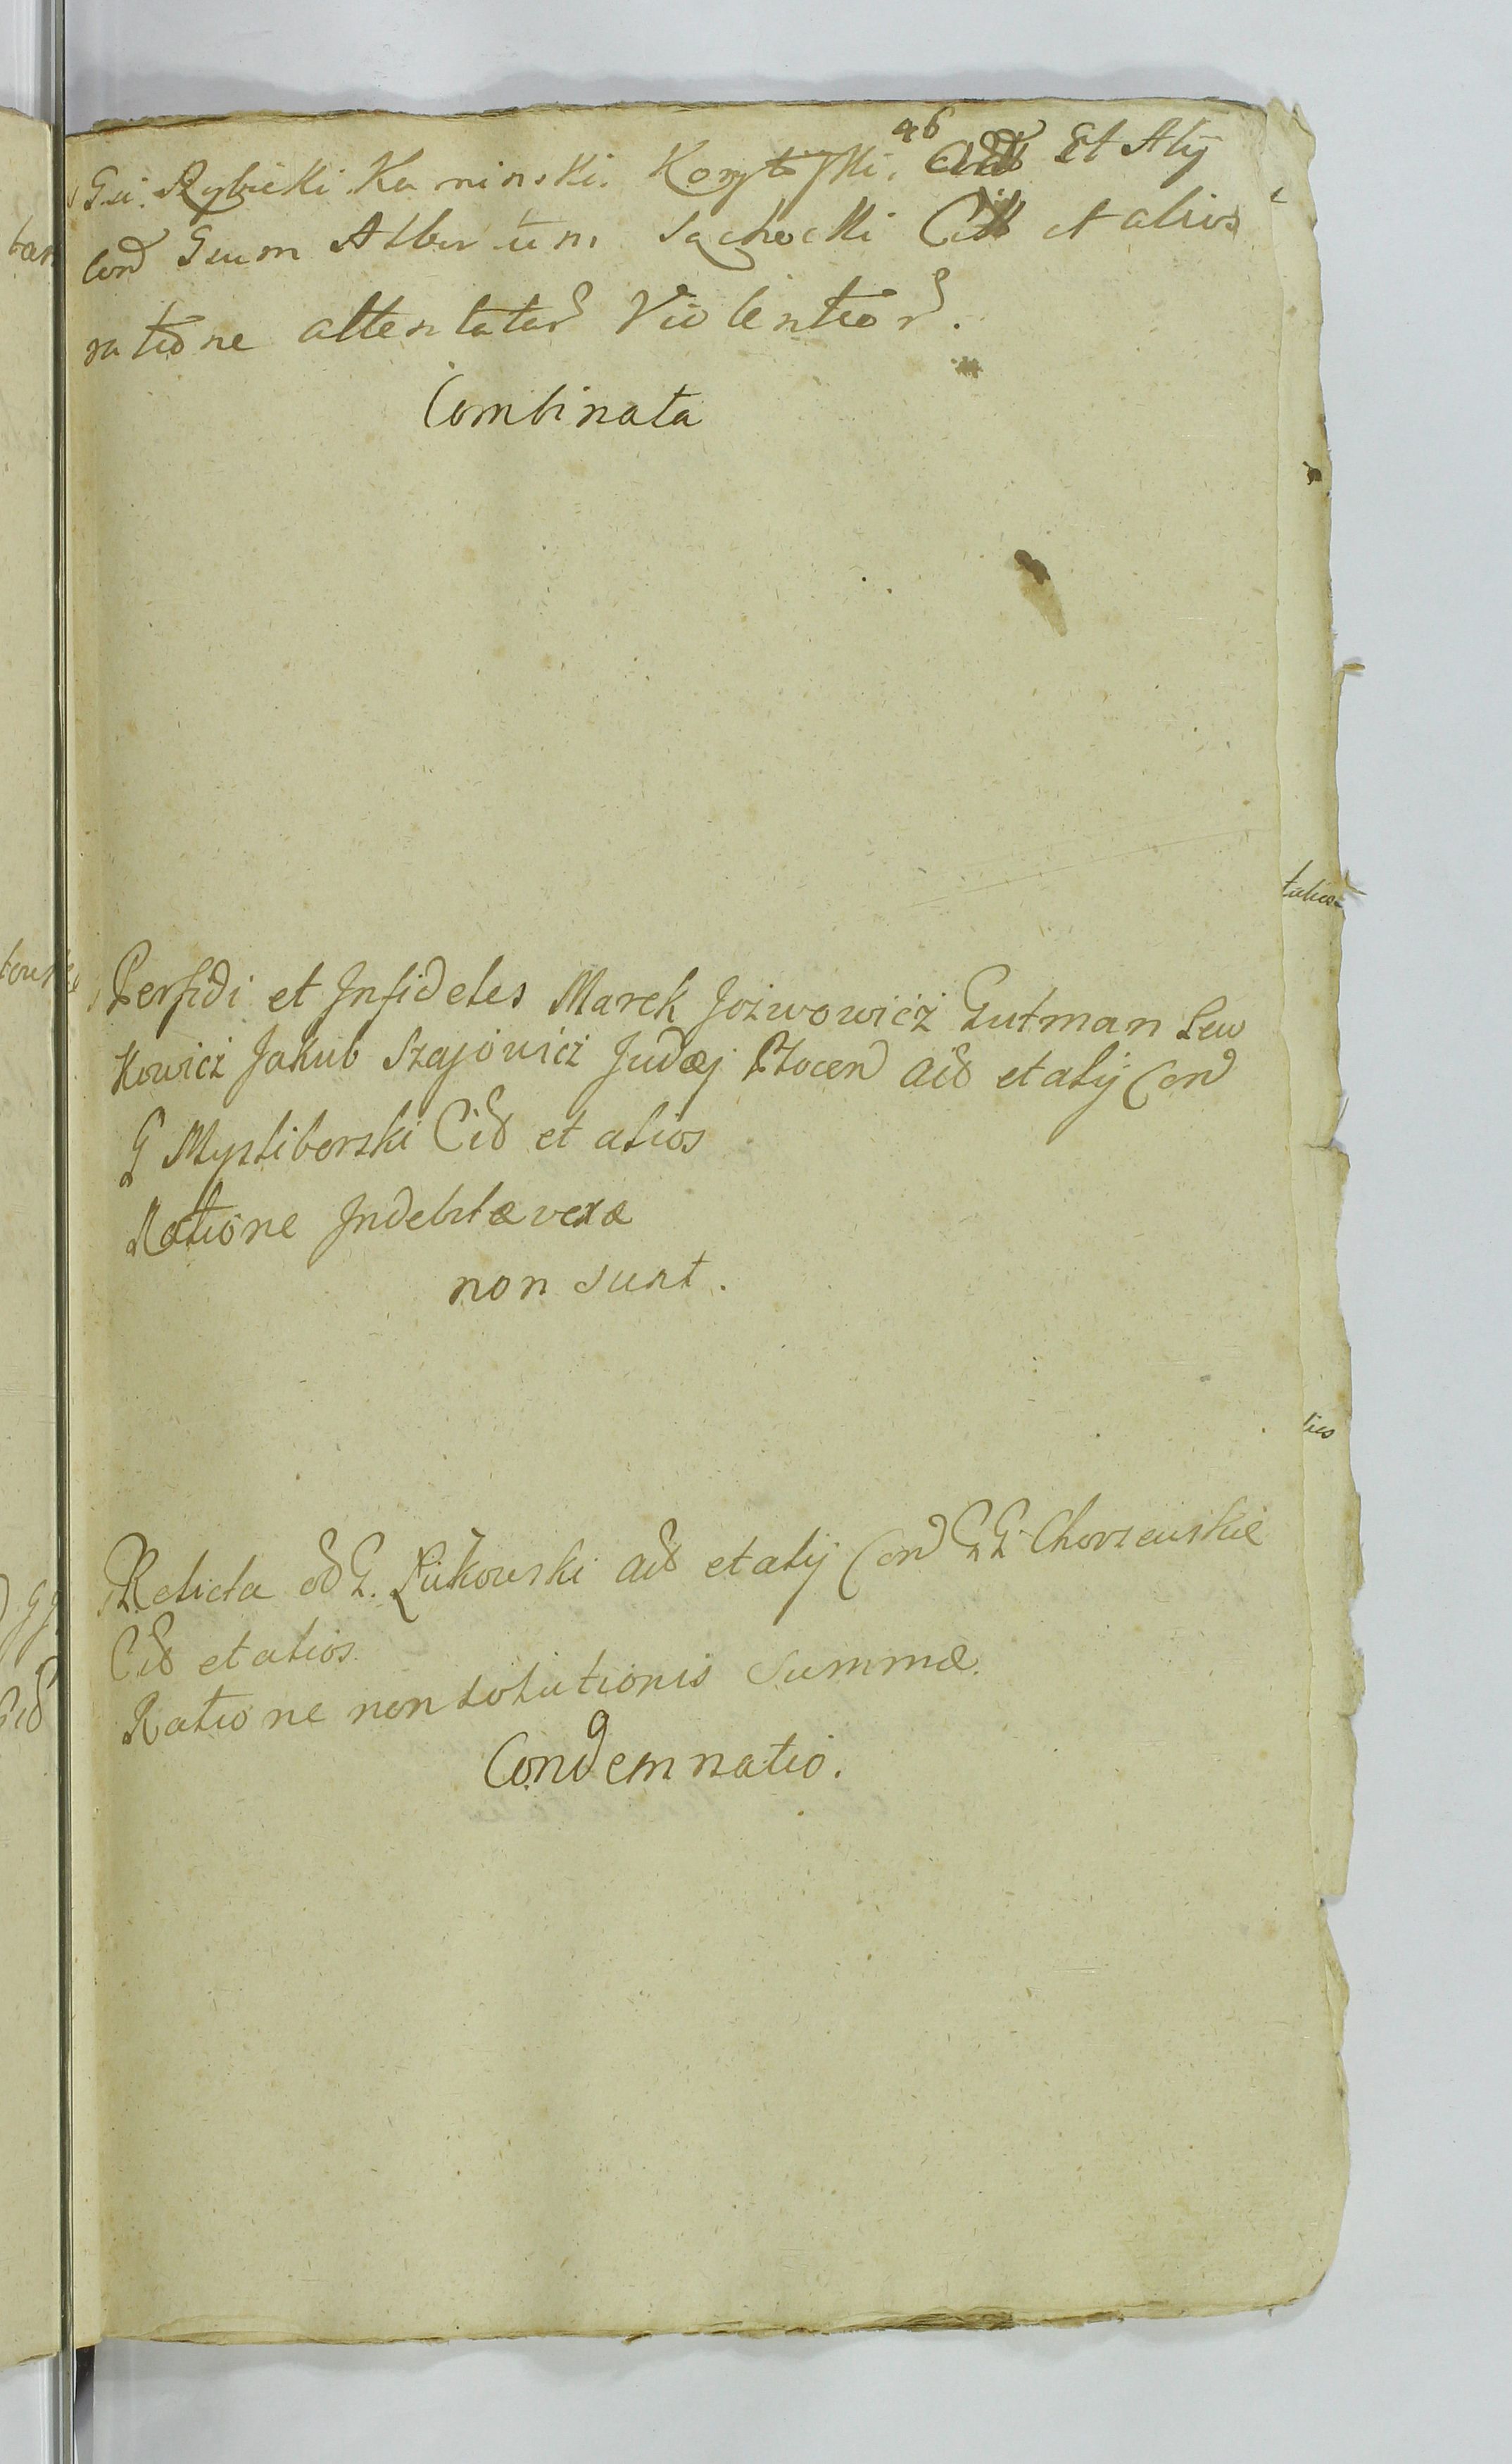 46
Gsi. Rybicki Kaminski. Et Alij
Con͠d Gsum Albertum Sachocki Cit͠t et alios
ratione attentatar͠ Violentior͠.
Combinata
Perfidi et Infideles Marek Joźwowicż Gutman Lew
kowicż Jakub Szajowicż Judæj Płocen͠ Ac͠t et alij Con͠
G Mysliborski Ci͠t et alios
Ratione Indebitæ vexæ
non sunt.
Relicta G. Łukowski ac͠t et alij Con͠ GG Chorzewskie
Ci͠t et alios.
Ratione non solutionis Summæ.
Condemnatio.